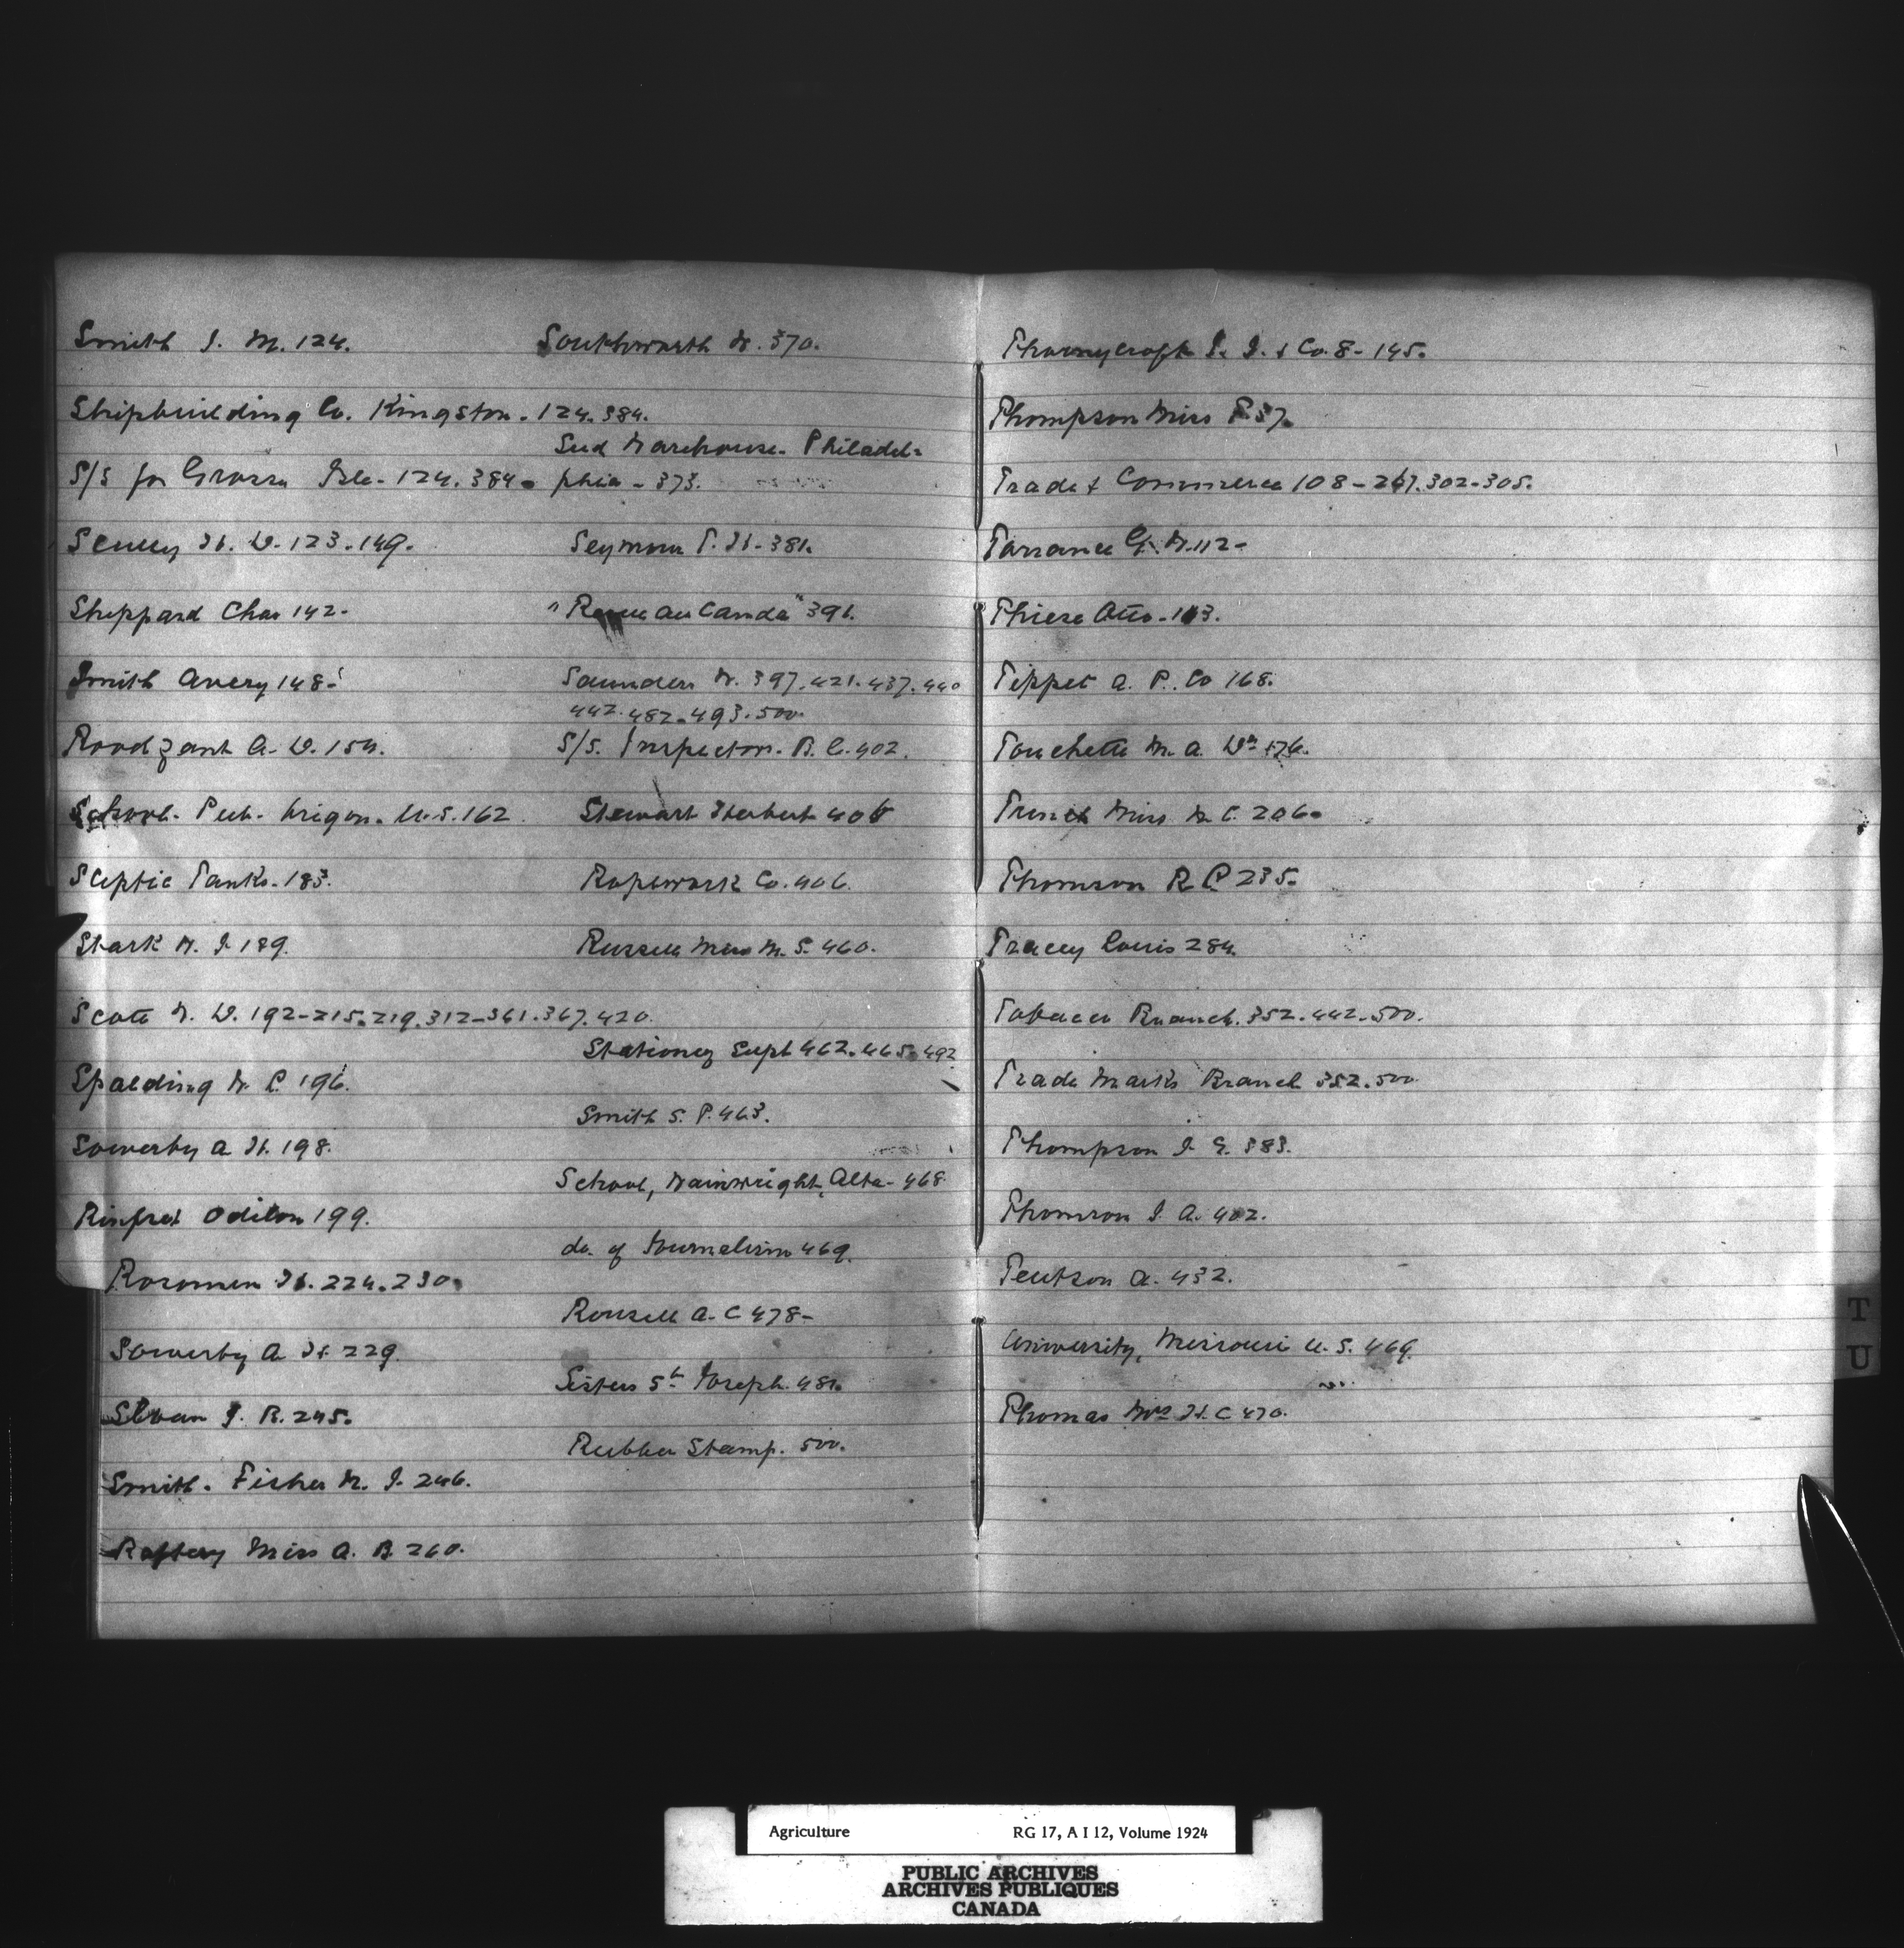 Smith J. M. 124.
Shipbuilding Co. Kingston. 124. 384.
S/S for Grosse Isle. 124. 384.
Scully H. D. 123. 149.
Sheppard Chas 142-
Smith Avery 148-
Roodzant A. D. 154.
School. Pub. U.S. 162
Sceptic Tanks. 183.
Stark W. J. 189.
Scott W. D. 192-215.219.312-361.367.420.
Spalding W. P. 196.
Sowerby A H. 198.
Rinfret Odilon 199.
Rosomen H. 224.230.
Sowerby A H. 229.
Sloan J. R. 245.
Smith. Fisher W. J. 246.
Raftery Miss A. B. 260.
Southworth W. 370.
Seed Warehouse. Philadel=
phia - 373.
Seymour T. H. - 381.
"Revue au Canda" 391.
Saunders W. 397.421.437.440
442.482.493.500.
S/S. Inspectors. B. C. 402.
Stewart Herbert 406
Ropework Co. 406.
Russell Miss M. S. 460.
Stationery Supt 462.465.492
Smith S. P. 463.
School, Wainwright, Alta- 468
do. of Journalism 469.
Rousell A. C 478-
Sisters St Joseph. 481.
Rubber Stamp. 500.
Thornycroft J. I. & Co. 8-145.
Thompson Miss F. 57.
Trade & Commerce 108-267.302-305.
Torrance G. W. 112-
Thiese Otto-
Tippet A. P. Co 168.
Touchette M. A. Dr 176.
Miss M C. 206.
Thomson R P 235.
Tracey Louis 284.
Tobacco Branch. 352.442.500.
Trade Marks Branch 352.500.
Thompson J. G. 383.
Thomson J. A. 402.
Teutson A. 432.
University, Missouri U. S. 469.
Thomas Mrs H. C 470.
T
U
Agriculture RG 17, A I 12, Volume 1924
PUBLIC ARCHIVES
ARCHIVES PUBLIQUES
CANADA